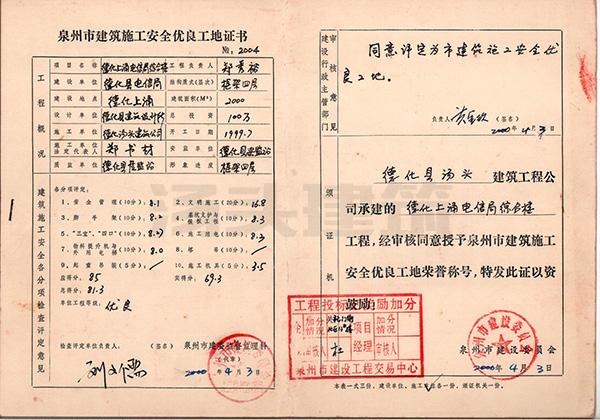 泉州市建筑施工安全优良工地证书
№: 2004
工程概况
项目名称 德化上涌电信局综合楼 工程负责人 郑秀裕
建设单位 德化县电信局 结构类式(层次) 框架四层
建设地点 德化上涌 建筑面积(M²) 2000
设计单位 德化县建筑设计院 总投资 100万
施工单位 德化汤头建筑公司 开工日期 1999.7
施工单位法定代表人 郑书材 安监单位 德化县安监站
质监单位 德化县质监站 形象进度 框架四层
建筑施工安全各分项检查评定意见
各分项评定:
1、安全管理(10分) 8.1 2、文明施工(20分) 16.8
3、脚手架(10分) 8.2 4、基坑支护与模板工程(10分) 8.3
5、“三宝”、“四口”(10分) 8.27 6、施工用电(10分) 8.3
7、物料提升机与外用电梯(10分) 8.0 8、塔吊(10分)
9、起重吊装(5分) / 10、施工机具(5分) 3.5
应得分: 85 实得分: 69.3
总得分: 81.3
单位工程等级: 优良
检查评定单位负责人: 泉州市建筑安全监理科
(代章)
2000年4月3日
建设行政主管部门
审核意见
同意评定为市建筑施工安全优
良工地。
负责人 (签名)
2000年4月3日
颁证机
德化县汤头 建筑工程公
司承建的 德化上涌电信局综合楼
工程,经审核同意授予泉州市建筑施工
安全优良工地荣誉称号,特发此证以资
鼓励
泉州市建设委员会
2000年4月3日
工程投标 励加分
加分情况 项目经理 加分情况
审核人 杜 审核人
泉州市建设工程交易中心
泉州市建设委员会
本表一式三份,建设单位、施工单位各一份,颁证机关一份。
汤头建筑